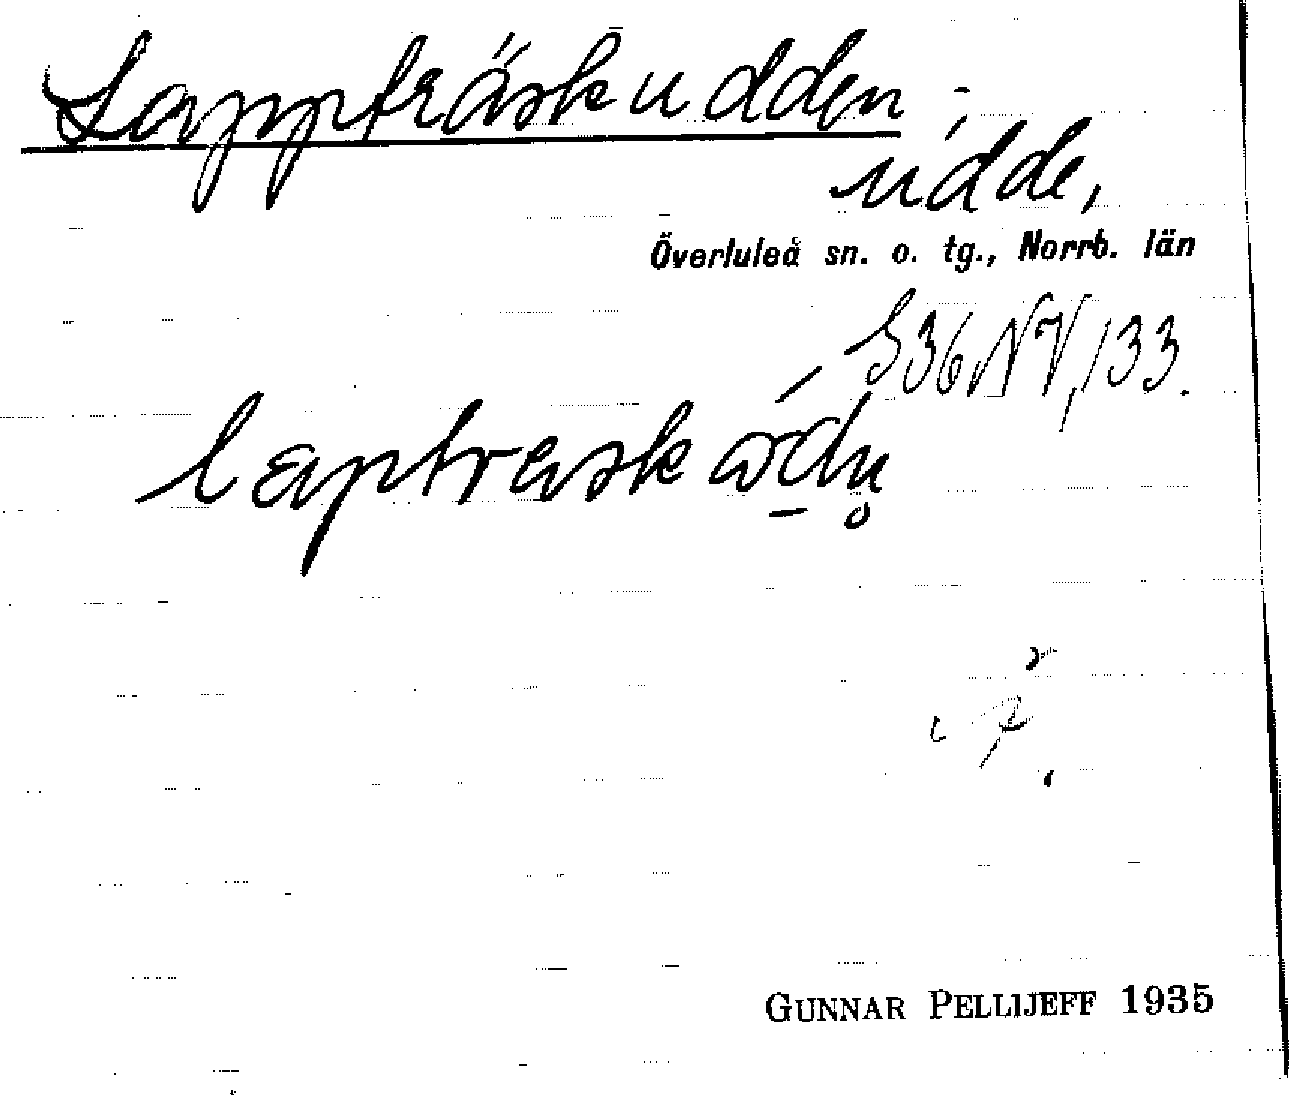 Lappträskudden –
udde,
Överluleå sn. o. tg., Norrb. län
S36NV, 133.
GUNNAR PELLIJEFF 1935